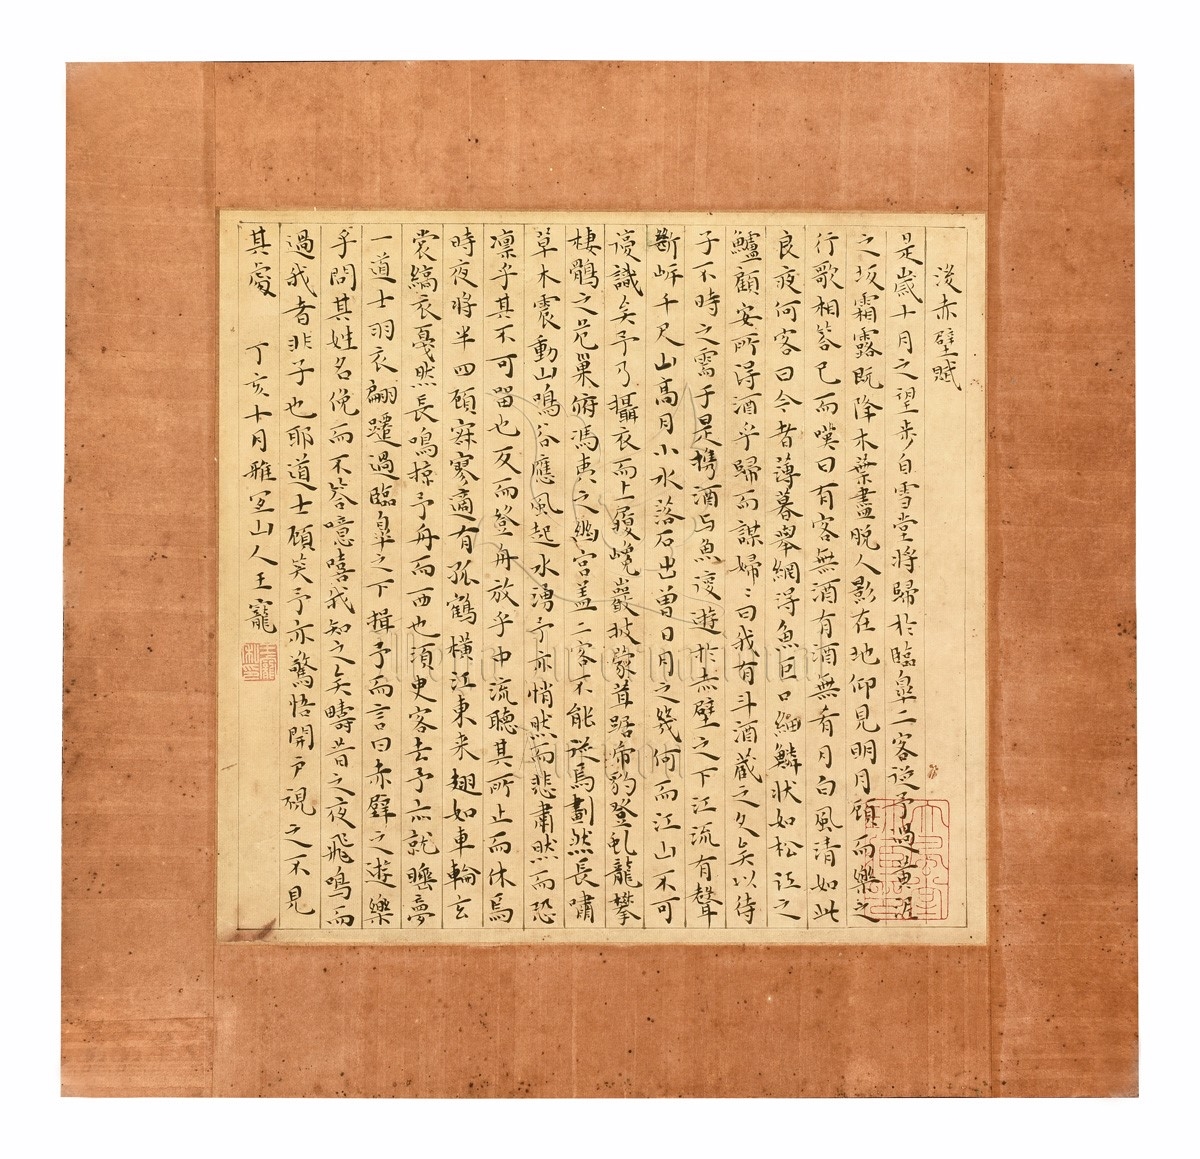 後赤壁賦
是歲十月之望步自雪堂將歸於臨皐二客從予過黃泥
之坂霜露既降木葉盡脫人影在地仰見明月顧而樂之
行歌相答已而嘆曰有客無酒有酒無肴月白風清如此
良夜何客曰今者薄暮舉網得魚巨口細鱗狀如松江之
鱸顧安所得酒乎歸而謀婦〻曰我有斗酒藏之久矣以待
子不時之需于是攜酒与魚復遊於赤壁之下江流有聲
斷岍千尺山高月小水落石出曾日月之幾何而江山不可
復識矣予乃攝衣而上履巉巖披蒙茸踞帍豹登虬龍攀
棲鶻之危巢俯馮夷之幽宮盖二客不能從焉劃然長嘯
草木震動山鳴谷應風起水湧予亦悄然而悲肅然而恐
凛乎其不可留也反而登舟放乎中流聽其所止而休焉
時夜將半四顧寂寥適有孤鶴橫江東來翅如車輪玄
裳縞衣戛然長鳴掠予舟而西也須臾客去予亦就睡夢
一道士羽衣翩躚過臨皐之下揖予而言曰赤壁之遊樂
乎問其姓名俛而不答噫嘻我知之矣疇昔之夜飛鳴而
過我者非子也耶道士顧笑予亦驚悟開戶視之不見
其處 丁亥十月雅宜山人王寵